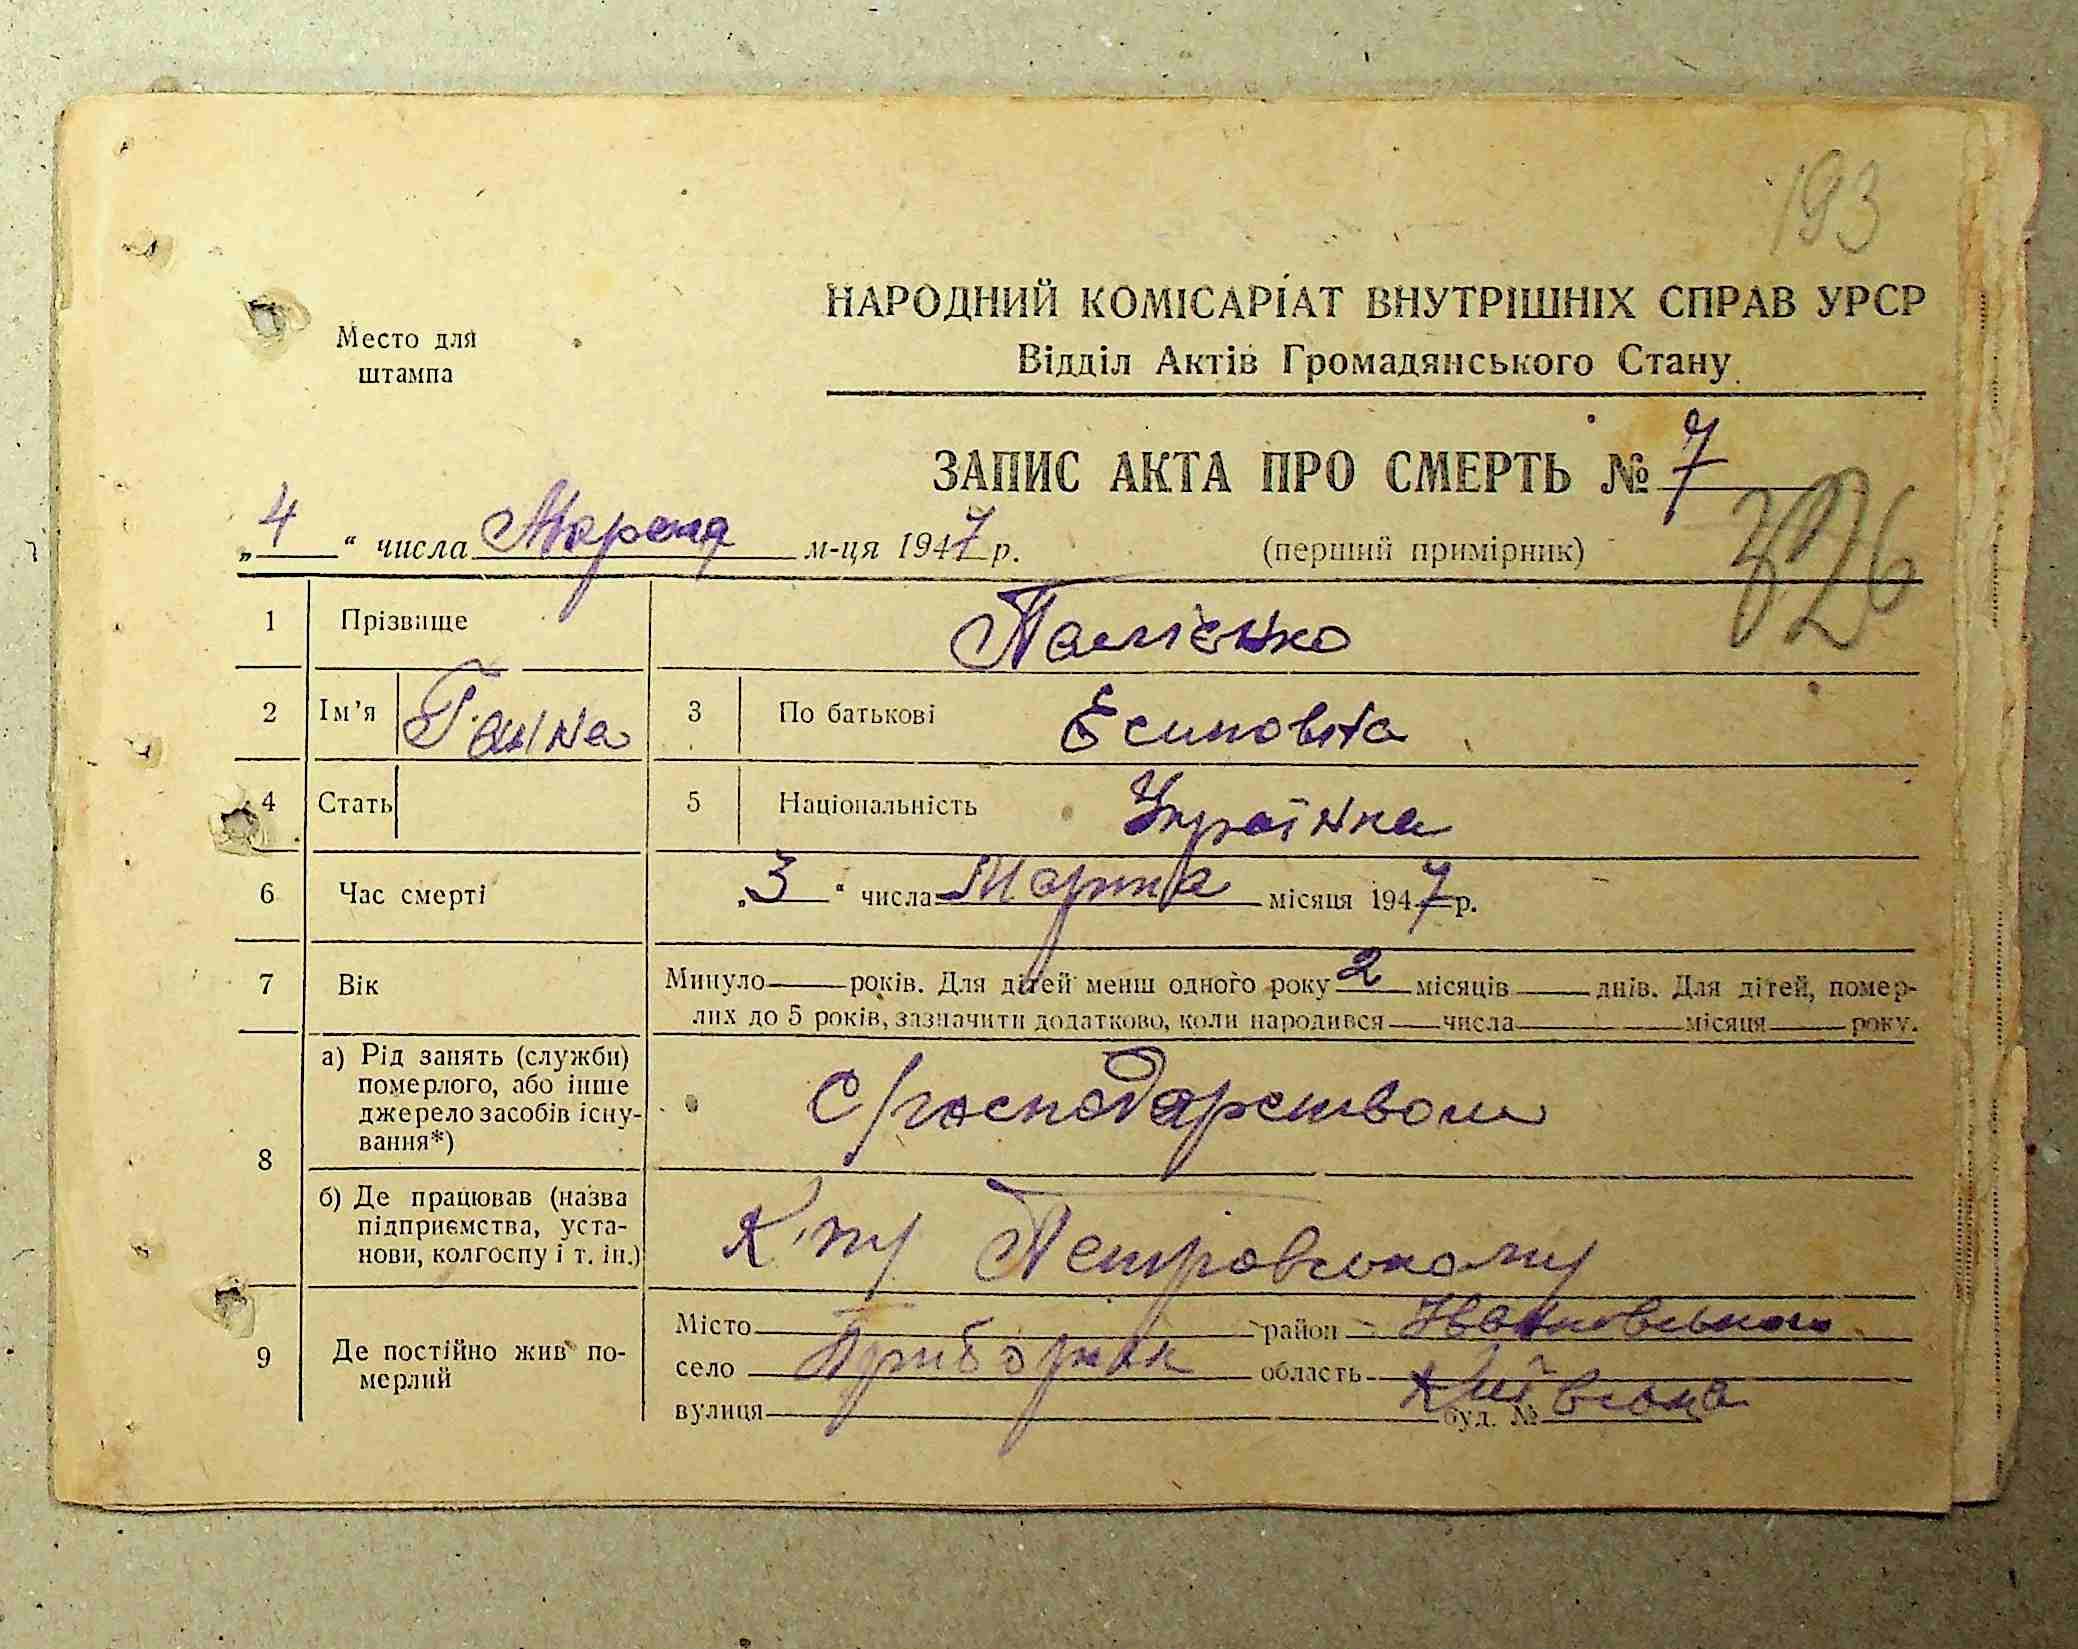 193
НАРОДНИЙ КОМІСАРІАТ ВНУТРІШНІХ СПРАВ УРСР
Место для
штампа
Відділ Актів Громадянського Стану
ЗАПИС АКТА ПРО СМЕРТЬ № 7
„4“ числа Марта м-ця 1947 р. (перший примірник)
326
1 Прізвище Палієнко
2 Ім’я Ганна 3 По батькові Есиповна
4 Стать 5 Національність Українка
6 Час смерті „3“ числа Марта місяця 1947 р.
7 Вік Минуло — років. Для дітей менш одного року 2 місяців — днів. Для дітей, помер-
лих до 5 років, зазначити додатково, коли народився — числа — місяця — року.
8 а) Рід занять (служби)
померлого, або інше
джерело засобів існу-
вання*)
С/господарством
б) Де працював (назва
підприємства, уста-
нови, колгоспу і т. ін.)
К. ім. Петровському
9 Де постійно жив по-
мерлий
Місто район Іванковського
село Приборськ область Київська
вулиця буд. №